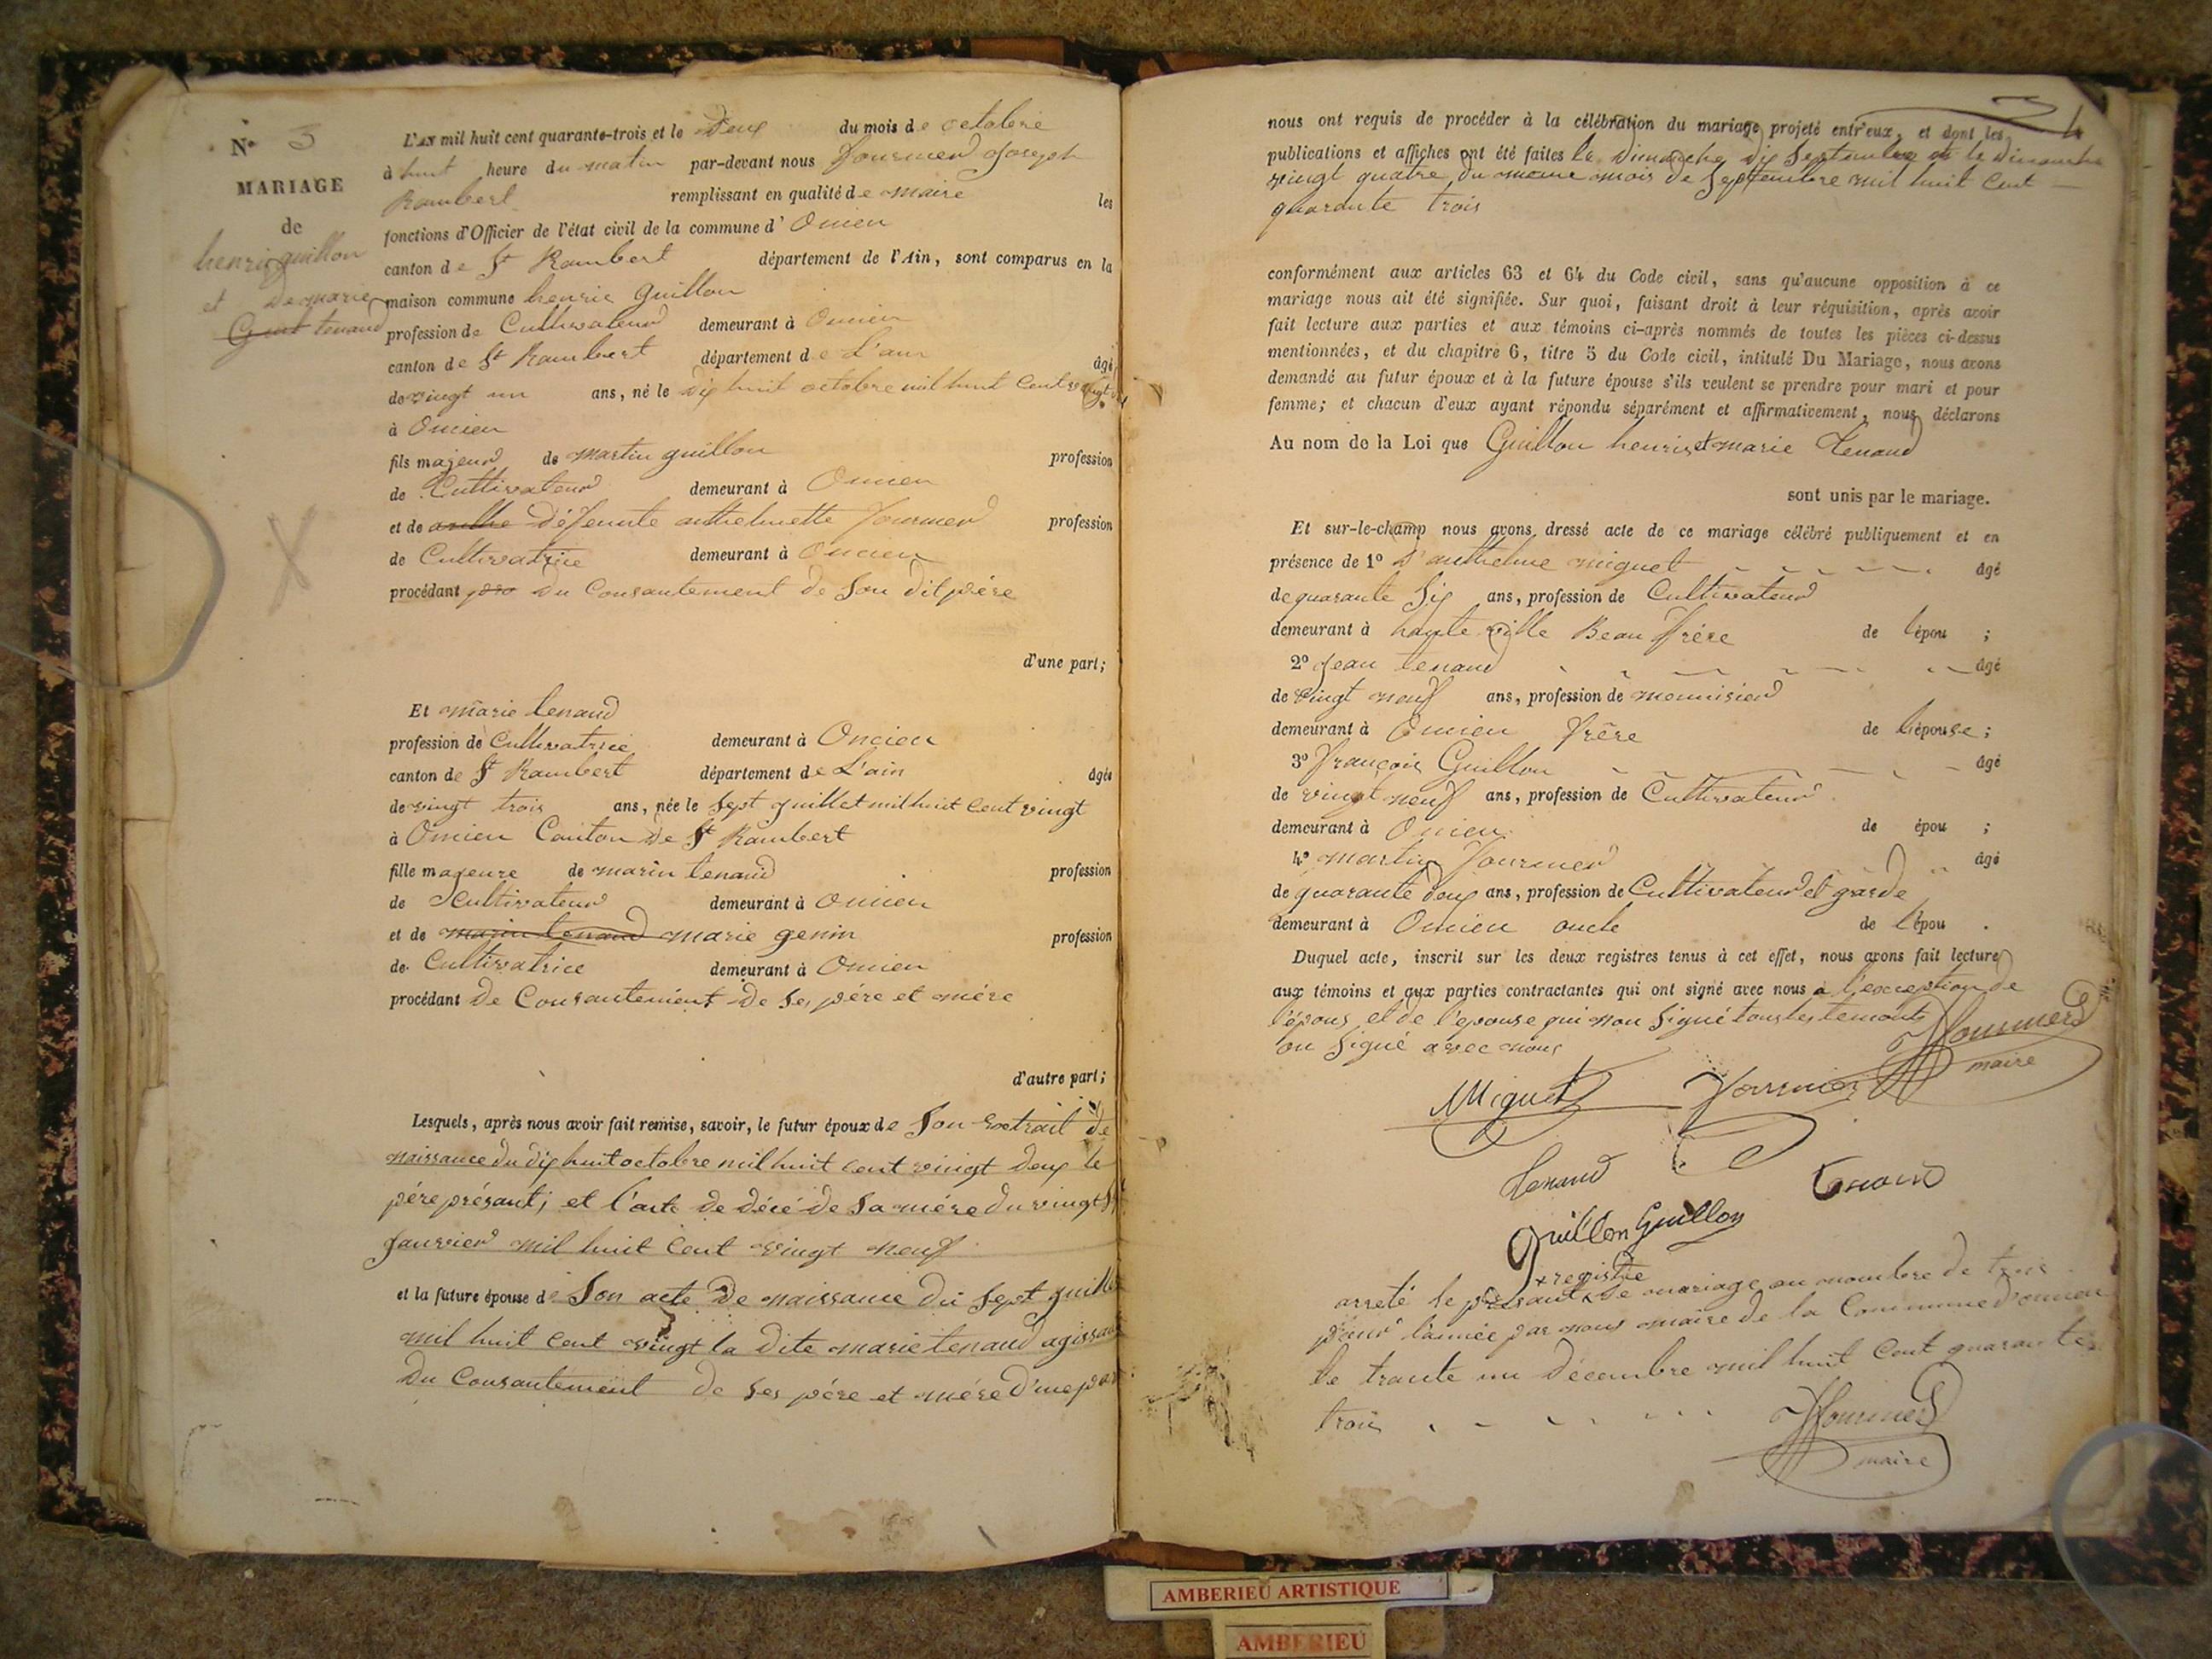 N° 3
MARIAGE
de
henri guillon
et de marie
tenand
L'AN mil huit cent quarante-trois et le Deux du mois de octobre
à huit heure du matin par-devant nous fournier Joseph
Rambert remplissant en qualité de maire les
fonctions d'Officier de l'état civil de la commune d'Oncieu
canton de St Rambert département de l'Ain, sont comparus en la
maison commune henrie Guillon
profession de Cultivateur demeurant à Oncieu
canton de St Rambert département de L'ain âgé
de vingt un ans, né le dix huit octobre mil huit Cent vingt
à Oncieu
fils majeur de Martin guillon profession
de Cultivateur demeurant à Oncieu
et de défeunte anthelmette fournier profession
de Cultivatrice demeurant à Oncieu
procédant du Consantement de Son dit père
d'une part;
Et marie tenand
profession de Cultivatrice demeurant à Oncieu
canton de St Rambert département de L'ain âgée
de vingt trois ans, née le Sept juillet mil huit Cent vingt
à Oncieu Canton de St Rambert
fille majeure de marin tenand profession
de Cultivateur demeurant à Oncieu
et de marin tenand marie genin profession
de Cultivatrice demeurant à Oncieu
procédant de Consantement de Ses père et mére
d'autre part;
Lesquels, après nous avoir fait remise, savoir, le futur époux de Son Extrait de
naissance du dix huit octobre mil huit cent vingt deux le
pére présant; et l'acte de décé de Sa mére du vingt
Janvier mil huit Cent vingt neuf
et la future épouse de Son acte De naissance du Sept juillet
mil huit Cent vingt la Dite marie tenand agissant
Du Consantement de Ses pére et mére d'une part
4
nous ont requis de procéder à la célébration du mariage projeté entr'eux, et dont les
publications et affiches ont été faites le Dimanche dix Septembre et le dimanche
vingt quatre du meme mois de Septembre mil huit Cent
quarante trois
conformément aux articles 63 et 64 du Code civil, sans qu'aucune opposition à ce
mariage nous ait été signifiée. Sur quoi, faisant droit à leur réquisition, après avoir
fait lecture aux parties et aux témoins ci-après nommés de toutes les pièces ci-dessus
mentionnées, et du chapitre 6, titre 5 du Code civil, intitulé Du Mariage, nous avons
demandé au futur époux et à la future épouse s'ils veulent se prendre pour mari et pour
femme; et chacun d'eux ayant répondu séparément et affirmativement, nous déclarons
Au nom de la Loi que Guillon henris et marie Tenand
sont unis par le mariage.
Et sur-le-champ nous avons dressé acte de ce mariage célébré publiquement et en
présence de 1° anthelme miguet âgé
de quarante Six ans, profession de Cultivateur
demeurant à haute ville Beau frére de lépou ;
2° Jean tenand âgé
de vingt neuf ans, profession de mennisier
demeurant à Oncieu frére de lépouse ;
3° François Guillon âgé
de vingt neuf ans, profession de Cultivateur
demeurant à Oncieu de épou ;
4° martin fournier âgé
de quarante Deux ans, profession de Cultivateur et garde
demeurant à Oncieu oncle de l'épou .
Duquel acte, inscrit sur les deux registres tenus à cet effet, nous avons fait lecture
aux témoins et aux parties contractantes qui ont signé avec nous a l'exception de
l'épous et de l'épouse qui non Signé tous les temoins
on Signé avec nous
fournier
maire
Miguet
fournier
tenand
Guillon Guillon
x registre
arreté le présant x de mariage au nombre de trois
pour l'année par nous maire de la Commune d'oncieu
le trante un décembre mil huit Cent quarante
trois
fournier
maire
AMBERIEU ARTISTIQUE
AMBERIEU